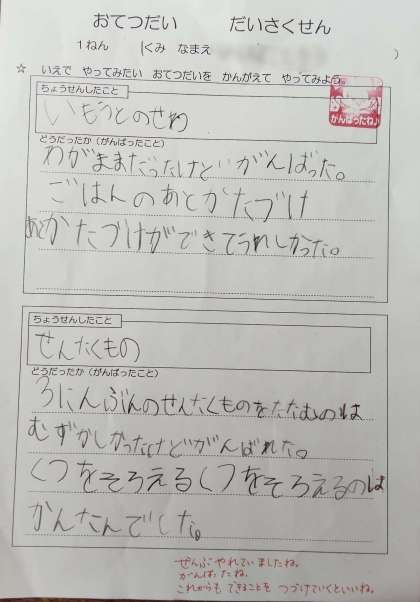 おてつだい だいさくせん
1ねん くみ なまえ )
☆ いえで やってみたい おてつだいを かんがえて やってみよう。
ちょうせんしたこと
いもうとのせわ
がんばったね♪
どうだったか(がんばったこと)
わがままだったけどがんばった。
ごはんのあとかたづけ
あとかたづけができてうれしかった。
ちょうせんしたこと
せんたくもの
どうだったか(がんばったこと)
3にんぶんのせんたくものをたたむのは
むずかしかったけどがんばれた。
くつをそろえるくつをそろえるのは
かんたんでした。
ぜんぶ やれていましたね。
がんばったね。
これからも できることを つづけていくといいね。